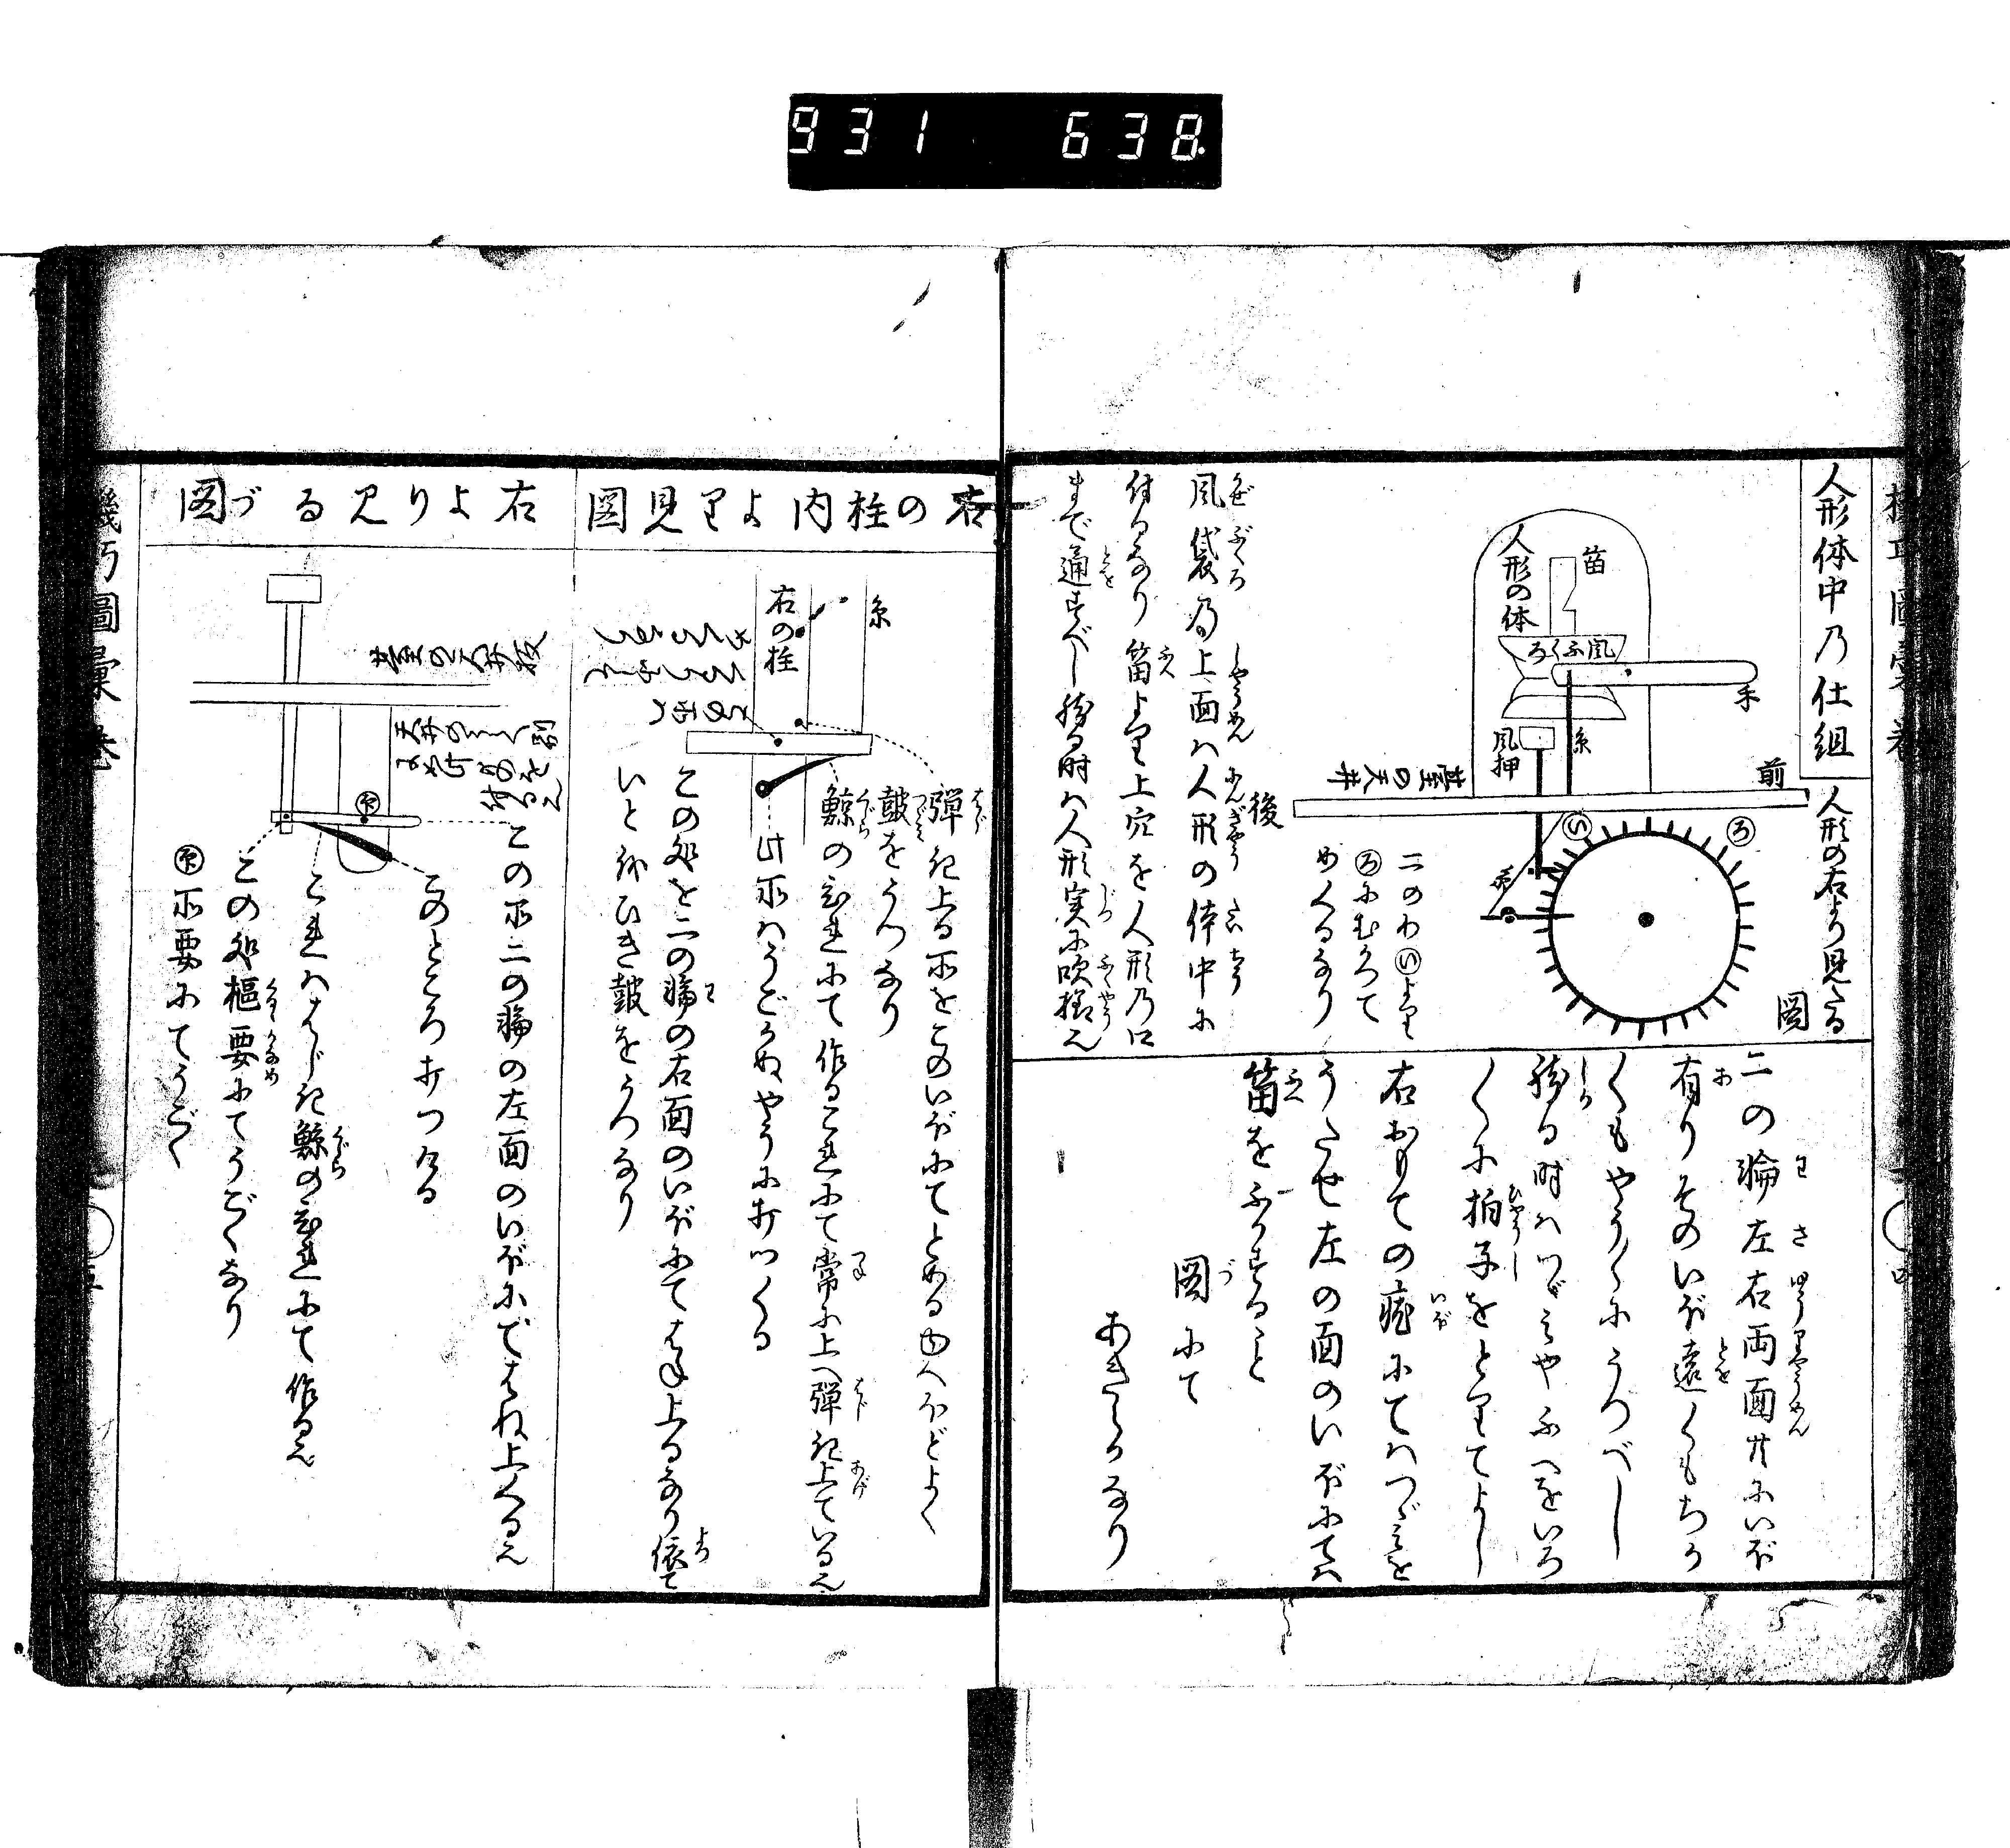 931 638
人形体中乃仕組
人形の右より見たる
図
笛
人形の体
風ふくろ
手
糸
風押
前
台の天井
後
い
ろ
二のわいより
ろにむかつて
めくるなり
風袋乃上面ハ人形の体中に
付るなり笛より上穴を人形乃口
まで通すべし然る時ハ人形実に吹様也
二の輪左右両面廿にいぼ
有りそのいぼ遠くもちか
くもやう〳〵にうつべし
然る時ハつゞミやふへをいろ
〳〵に拍子をとりてよし
右おもての疣にてハつゞミを
うたせ左の面のいぼにてハ
笛をふりすること
図にて
あきらかなり
右の柱内より見図
糸
右の柱
弾き上る所をこのいぼにてとめるゆへほどよく
鼓をうつなり
鯨のひれにて作るこれにて常に上へ弾き上ている也
此所ハうごかぬやうに打つくる
この処を二の輪の右面のいぼにてはね上るなり依て
いとをひき鼓をうつなり
右より見るづ図
台の天井板
この所二の輪の左面のいぼにてはね上くる也
このところ打つける
これハはじき鯨のひれにて作る也
この処枢要にてうごくなり
所要にてうごく
機巧圖彙 巻